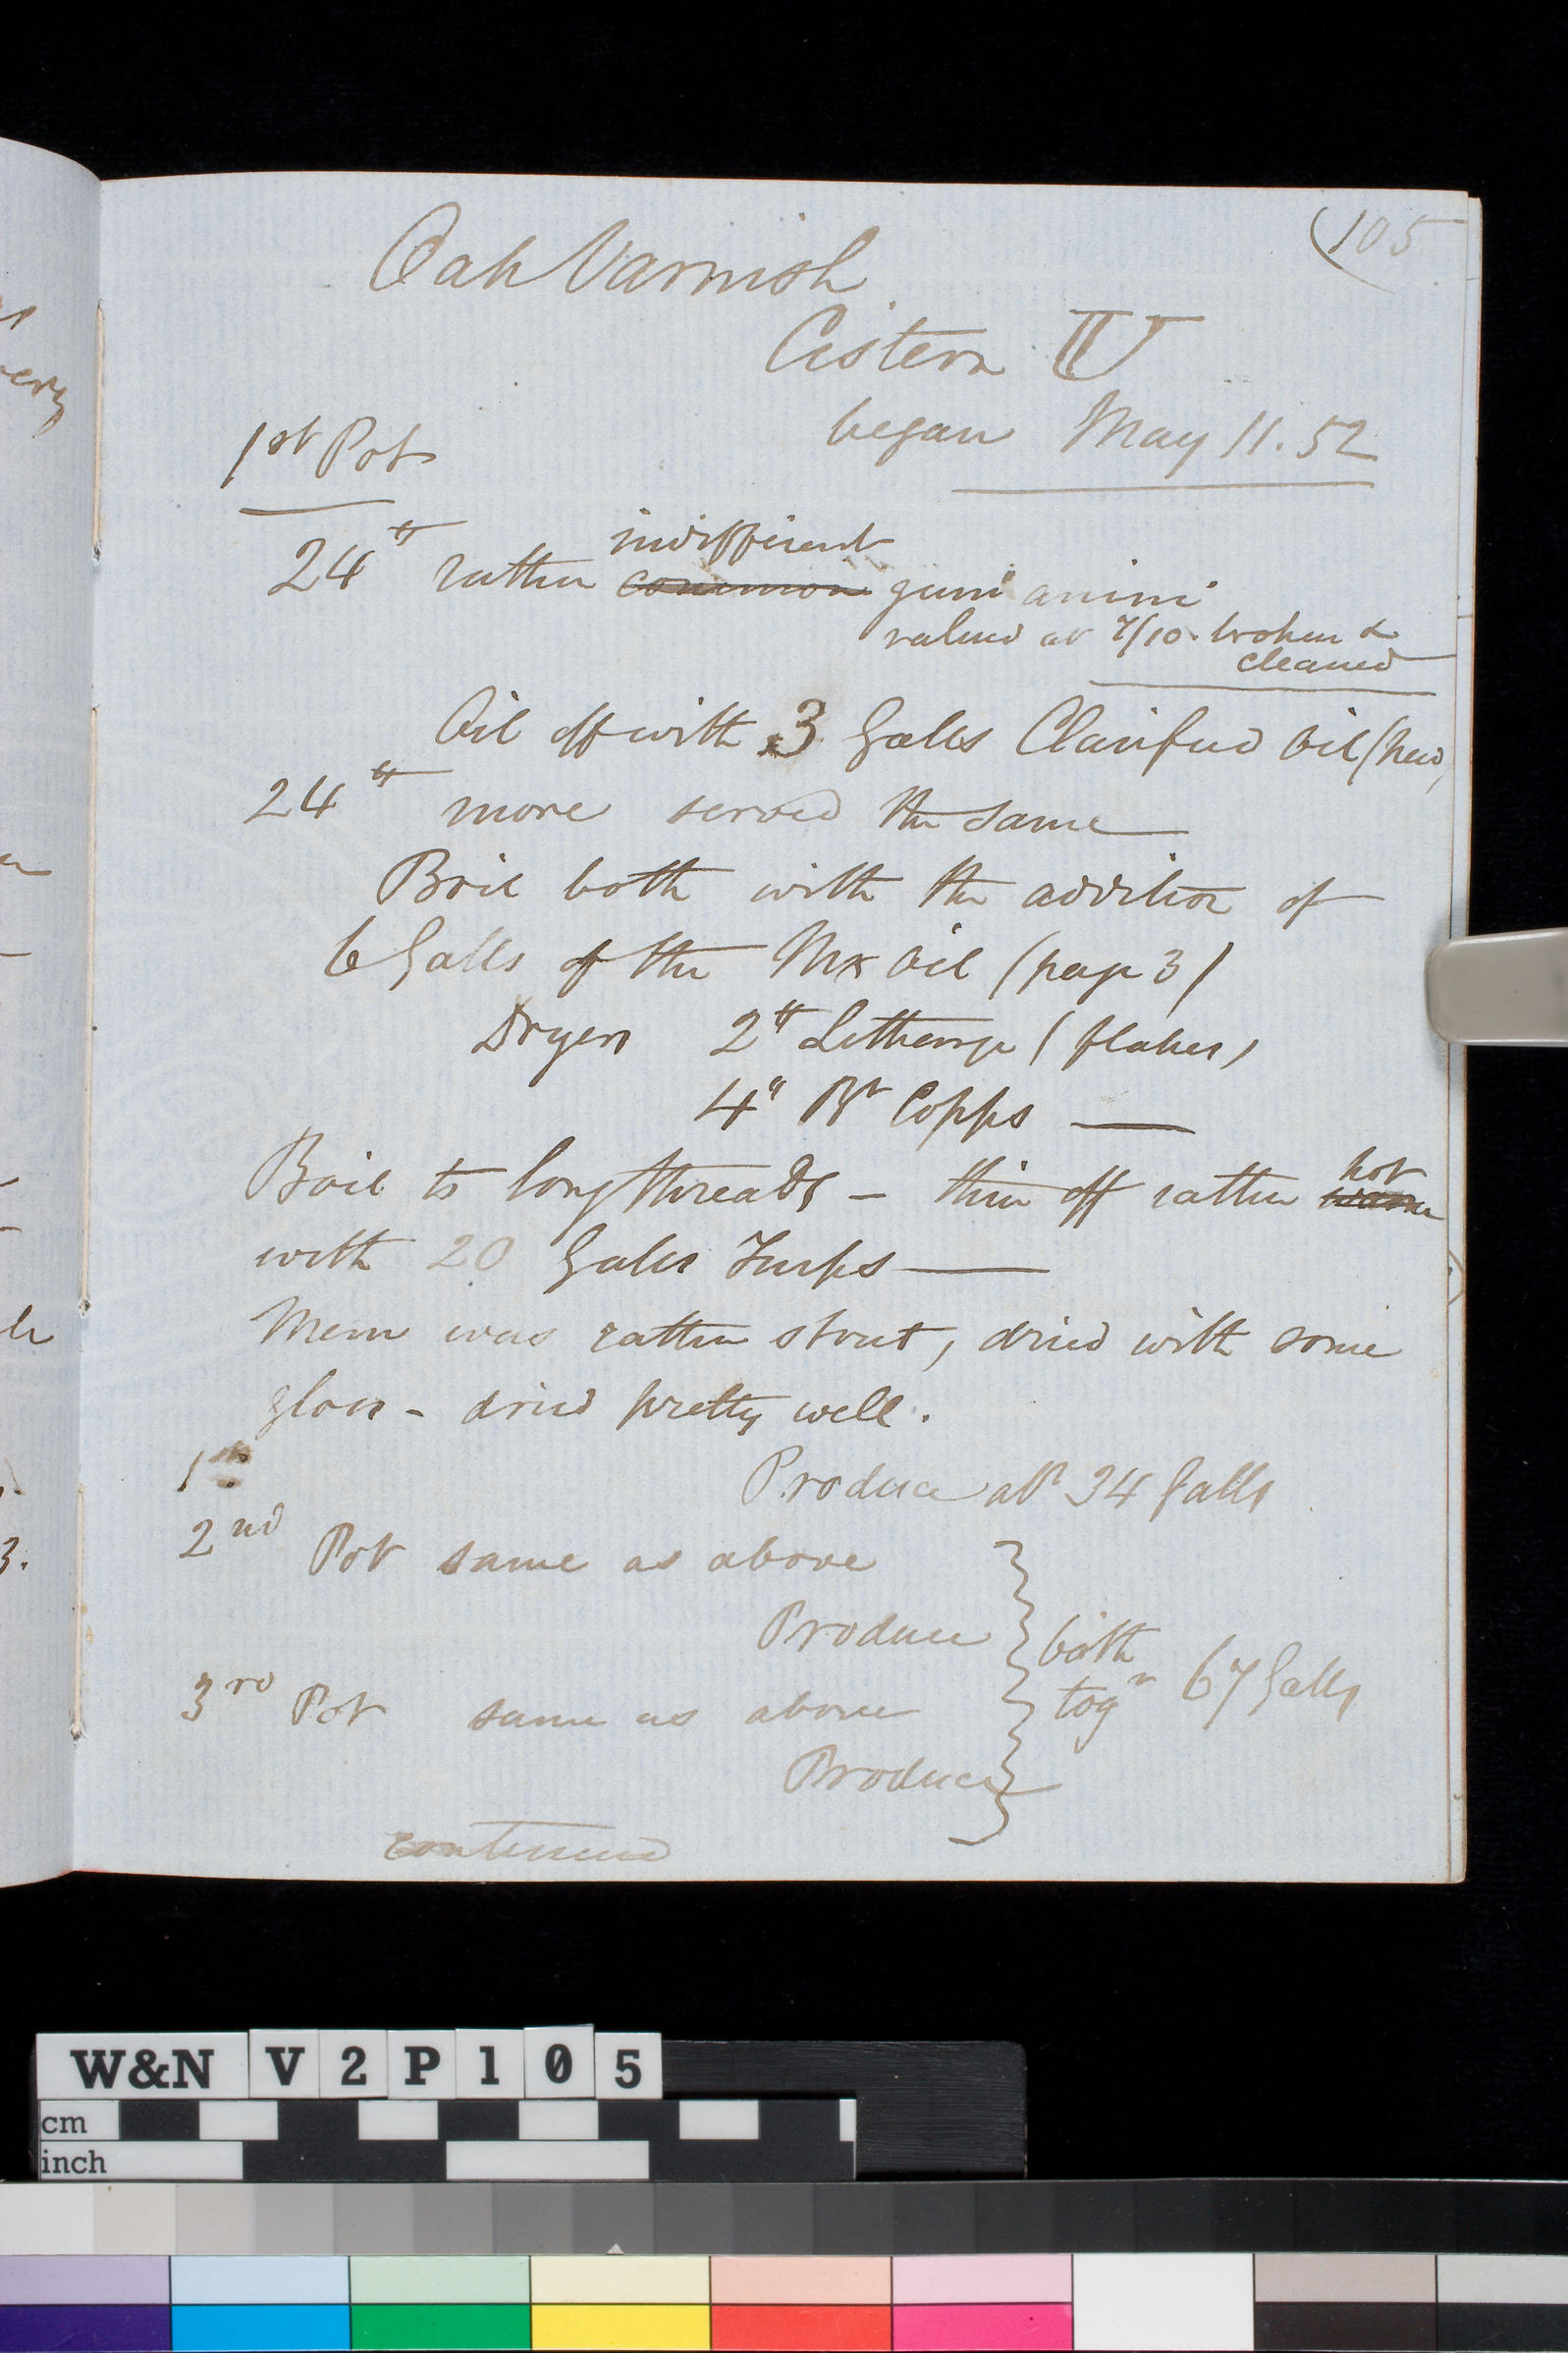 (105
Oak Varnish
Cistern IV
began May 11. 52
1st Pot
indifferent
24 lb rather common gum animi
valued at 7/10 broken &
cleaned
Oil off with 3 Galls Clarified Oil (new)
24 lb more served the same
Boil both with the addition of
6 Galls of the Mx Oil (page 3)
Dryers 2 lb Litharge (flakes)
4 " Bt Copps —
hot
Boil to long threads – thin off rather warm
with 20 Galls Turps —
Mem was rather stout, dried with some
gloss – dried pretty well.
1st
Produce abt 34 Galls
2nd Pot same as above
Produce
both
togr 67 Galls
3rd Pot same as above
Produce
continued
W&N V2P105
cm
inch